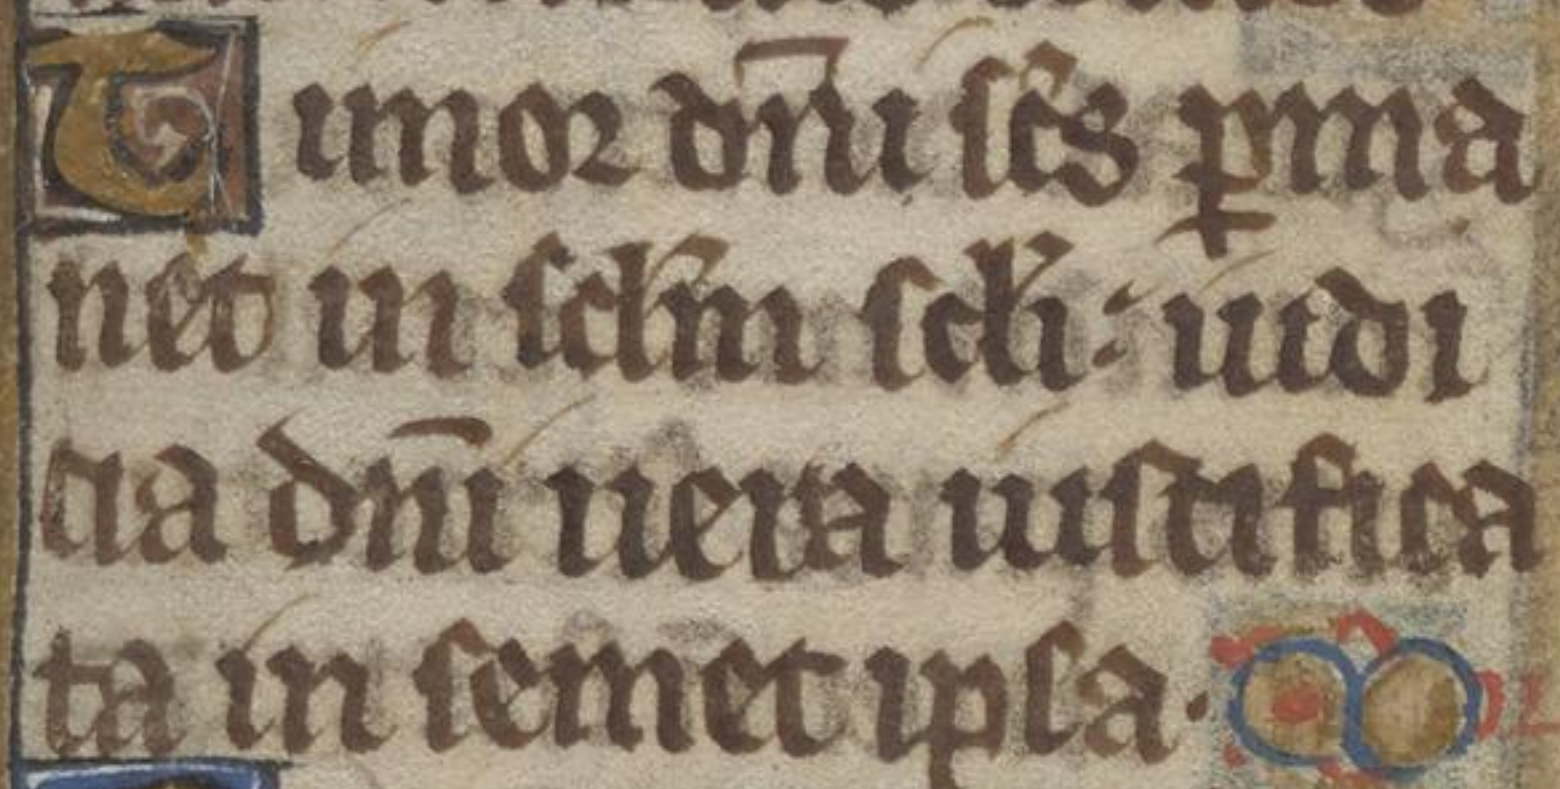 Timor dñi scs̄ ꝑma
net in sclm̄ scli: iudi
cia dñi uera iustifica
ta in semet ipsa.